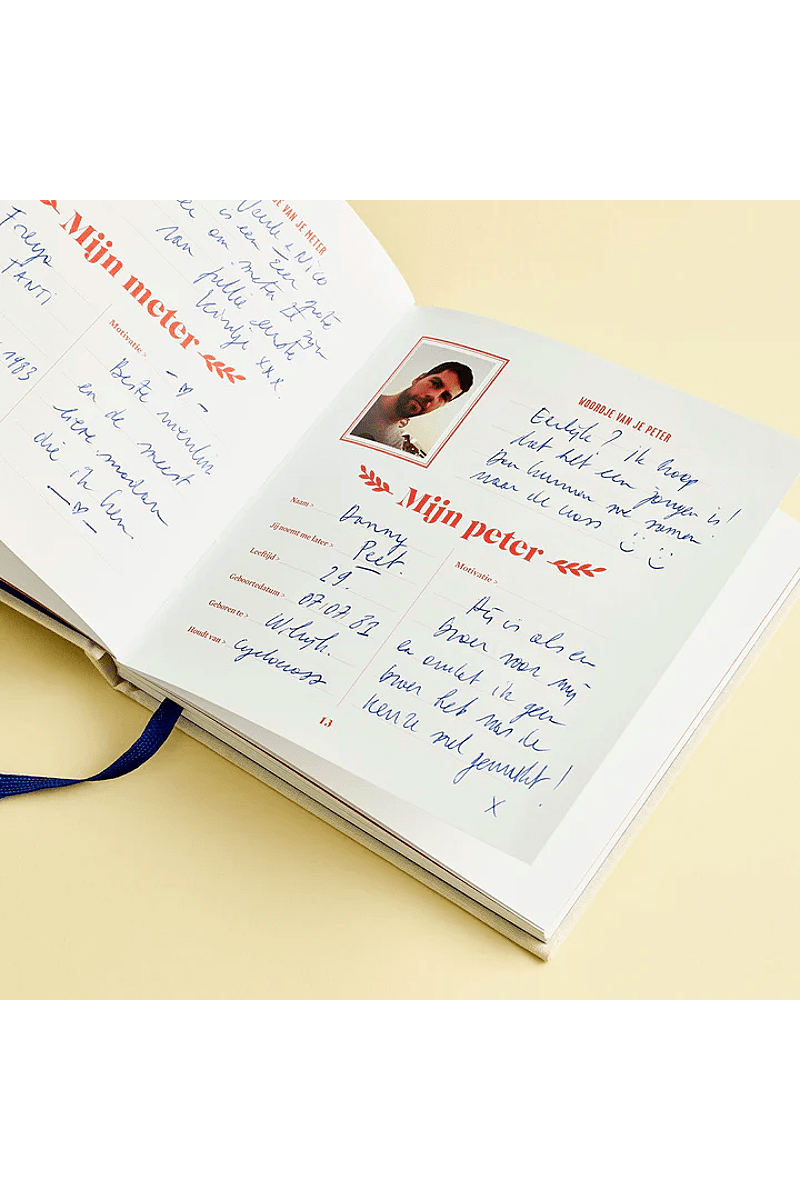 JE VAN JE METER
Veerle & Nico
is een Eer
om meter te zijn
van jullie eerste
kindje xxx.
Mijn meter
Freya
TANTI
1983
Motivatie >
Beste vriendin
en de meest
lieve madam
die ik ken.
WOORDJE VAN JE PETER
Eerlijk? Ik hoop
dat het een jongen is!
Dan kunnen we samen
naar de cross
Mijn peter
Naam >
Danny
Jij noemt me later >
Peet.
Leeftijd >
29.
Geboortedatum >
07.07.81
Geboren te >
Wilrijk.
Houdt van >
Cyclocross
Motivatie >
Hij is als een
broer voor mij
en omdat ik geen
broer heb was de
keuze snel gemaakt!
X
13